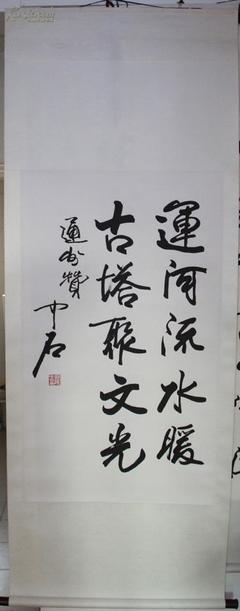 運河流水暖
古塔聚文光
通州贊
中石